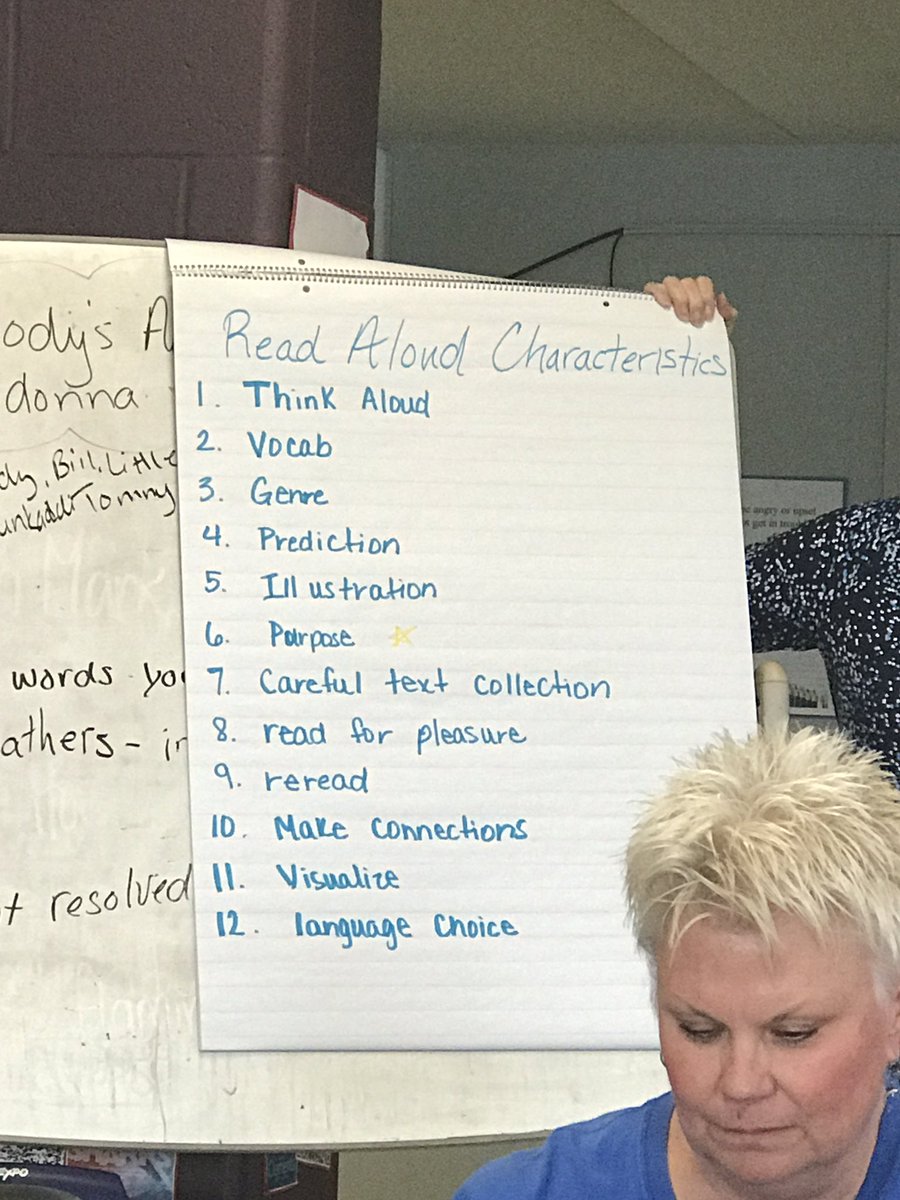 Read Aloud Characteristics
1. Think Aloud
2. Vocab
3. Genre
4. Prediction
5. Illustration
6. Purpose
7. Careful text collection
8. read for pleasure
9. reread
10. Make connections
11. Visualize
12. language choice
ody's A
donna
dy, Bill, Little
Tommy
words you
athers - in
t resolved
angry or upset
t get in
EXPO